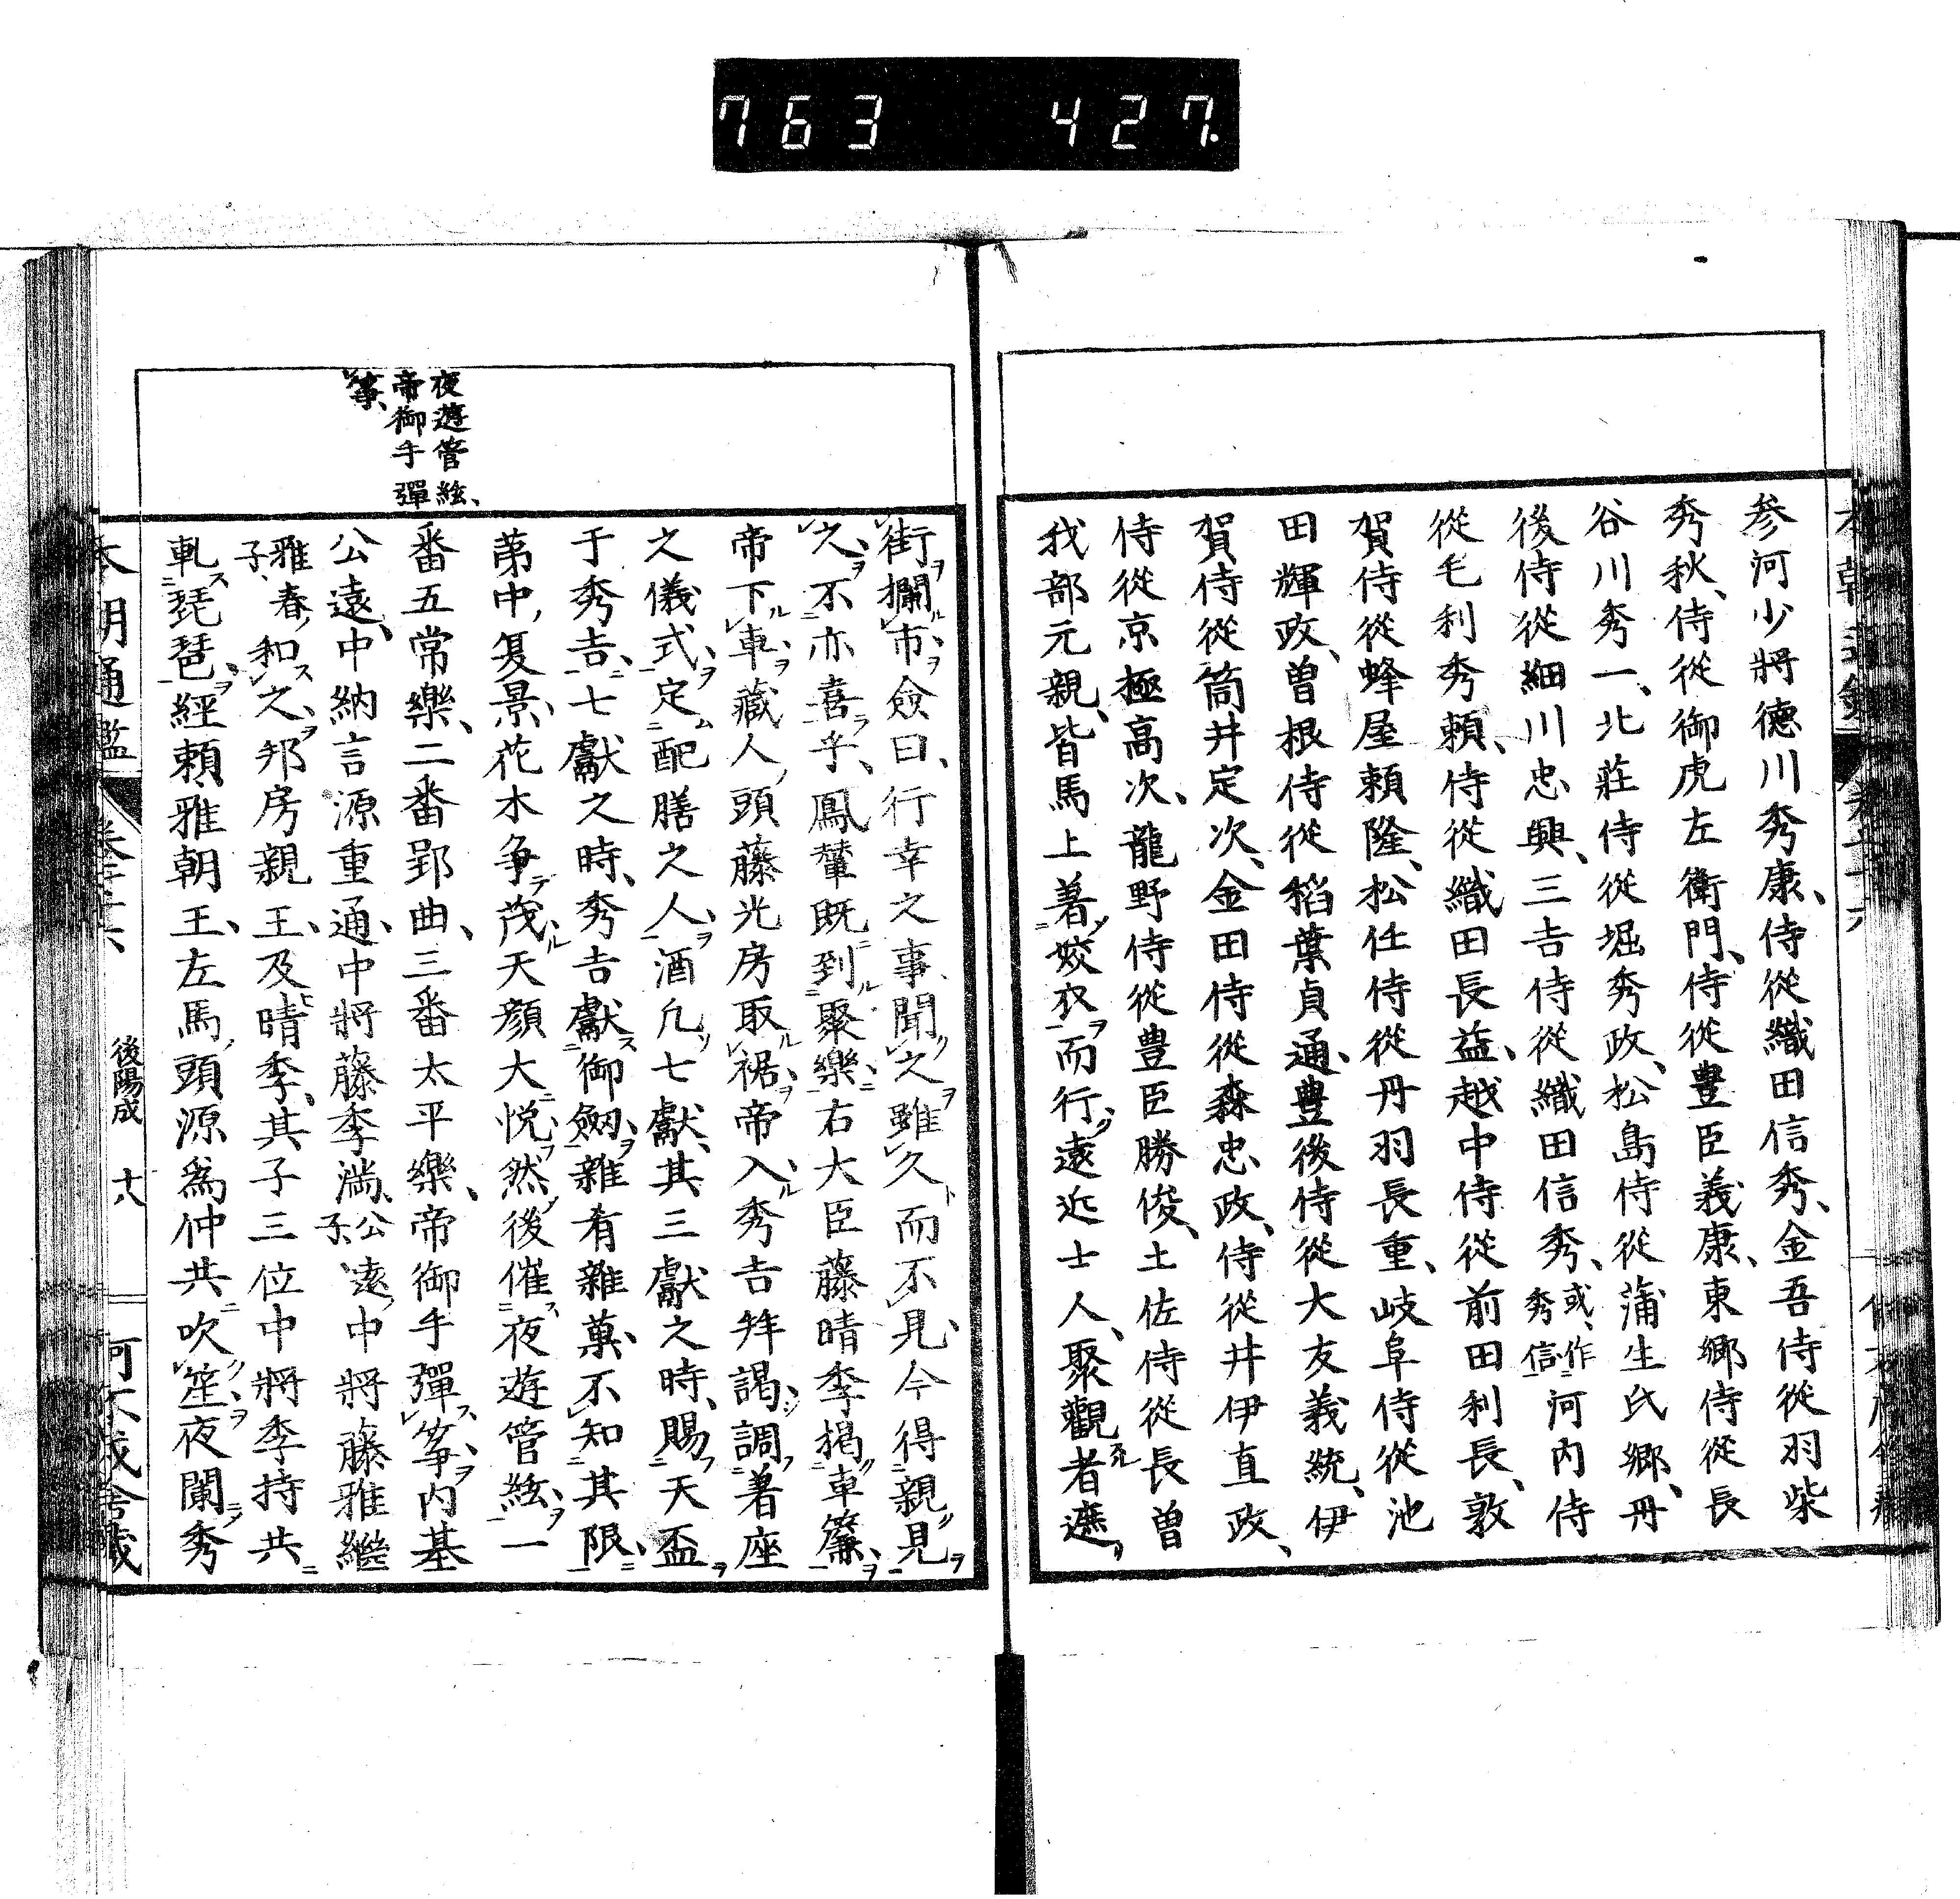 763 427.
参河少將德川秀康、侍從織田信秀、金吾侍從羽柴
秀秋、侍從御虎左衛門、侍從豊臣義康、東郷侍從長
谷川秀一、北莊侍從堀秀政、松島侍從蒲生氏郷、丹
後侍從細川忠興、三吉侍從織田信秀、或作秀信河内侍
從毛利秀賴、侍從織田長益、越中侍從前田利長、敦
賀侍從蜂屋賴隆、松任侍從丹羽長重、岐阜侍從池
田輝政、曽根侍從稻葉貞通、豊後侍從大友義統、伊
賀侍從筒井定次、金田侍從森忠政、侍從井伊直政、
侍從京極高次、龍野侍從豊臣勝俊、土佐侍從長曽
我部元親、皆馬上著姣衣而行、遠近士人、聚觀者遮
街攔市僉曰、行幸之事、聞之雖久而不見、今得親見
之、不亦喜乎、鳳輦既到聚樂、右大臣藤晴季揭車簾、
帝下車、藏人頭藤光房取裾、帝入、秀吉拜謁、調著座
之儀式、定配膳之人、酒凢七獻、其三獻之時、賜天盃
于秀吉、七獻之時、秀吉獻御劔、雜肴雜菓、不知其限、
苐中夏景、花木爭茂、天顔大悦、然後催夜遊管絃、一
番五常樂、二番郢曲、三番太平樂、帝御手彈筝、内基
公遠、中納言源重通、中將藤季満、公遠子、中將藤雅繼
雅春子、和之、邦房親王、及晴季、其子三位中將季持共
軋琵琶、經賴、雅朝王、左馬頭源為仲共吹笙、夜闌秀
夜遊管絃、
帝御手彈
筝、
後陽成 十八